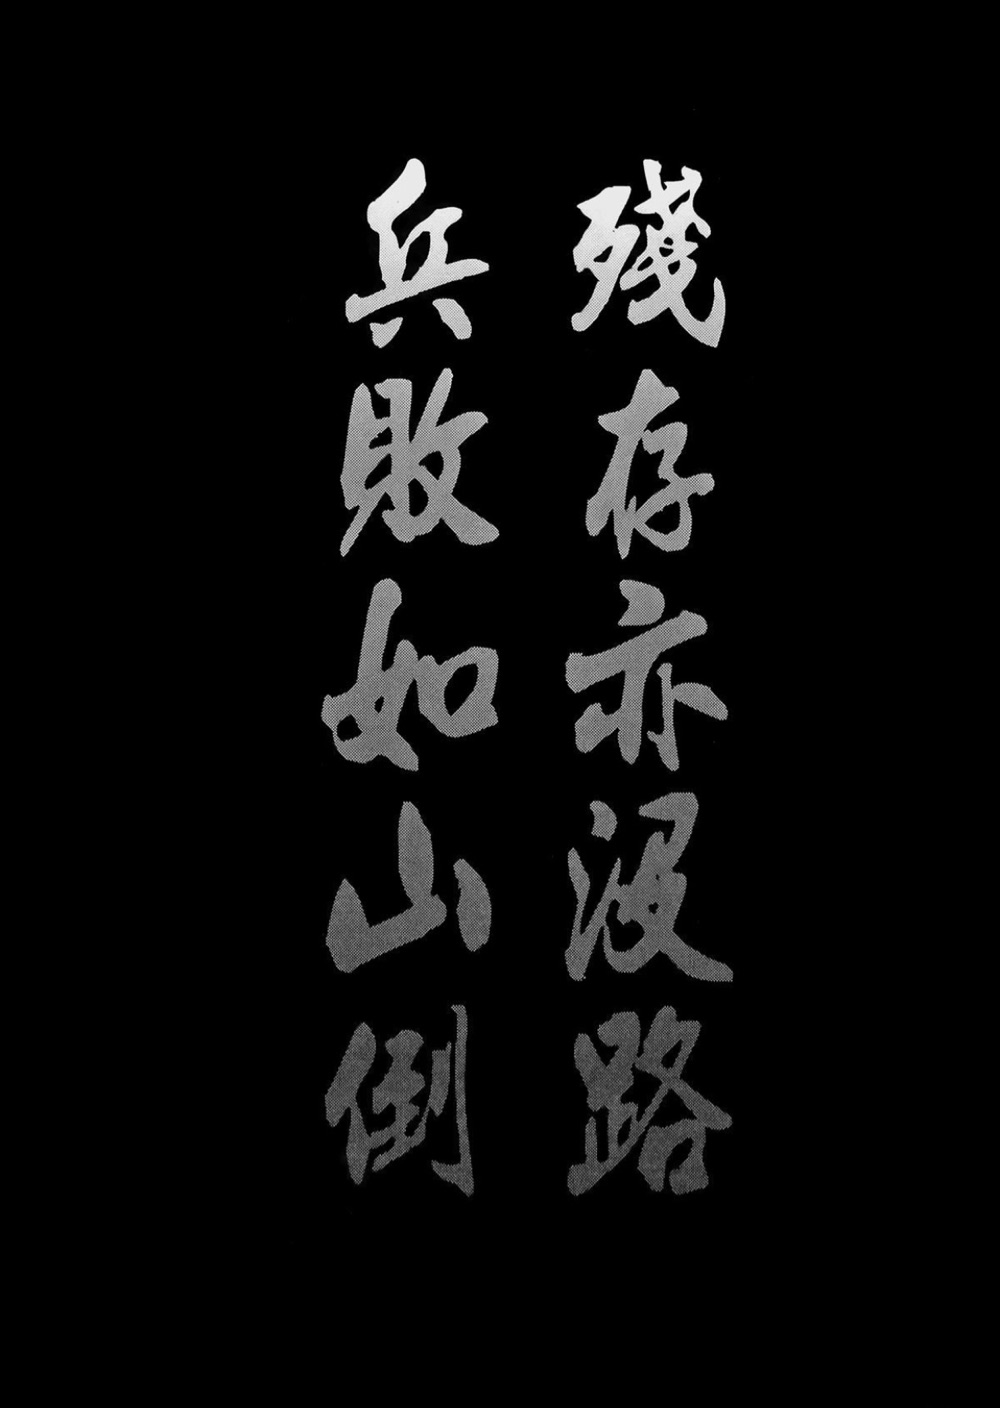 殘存亦没路
兵敗如山倒